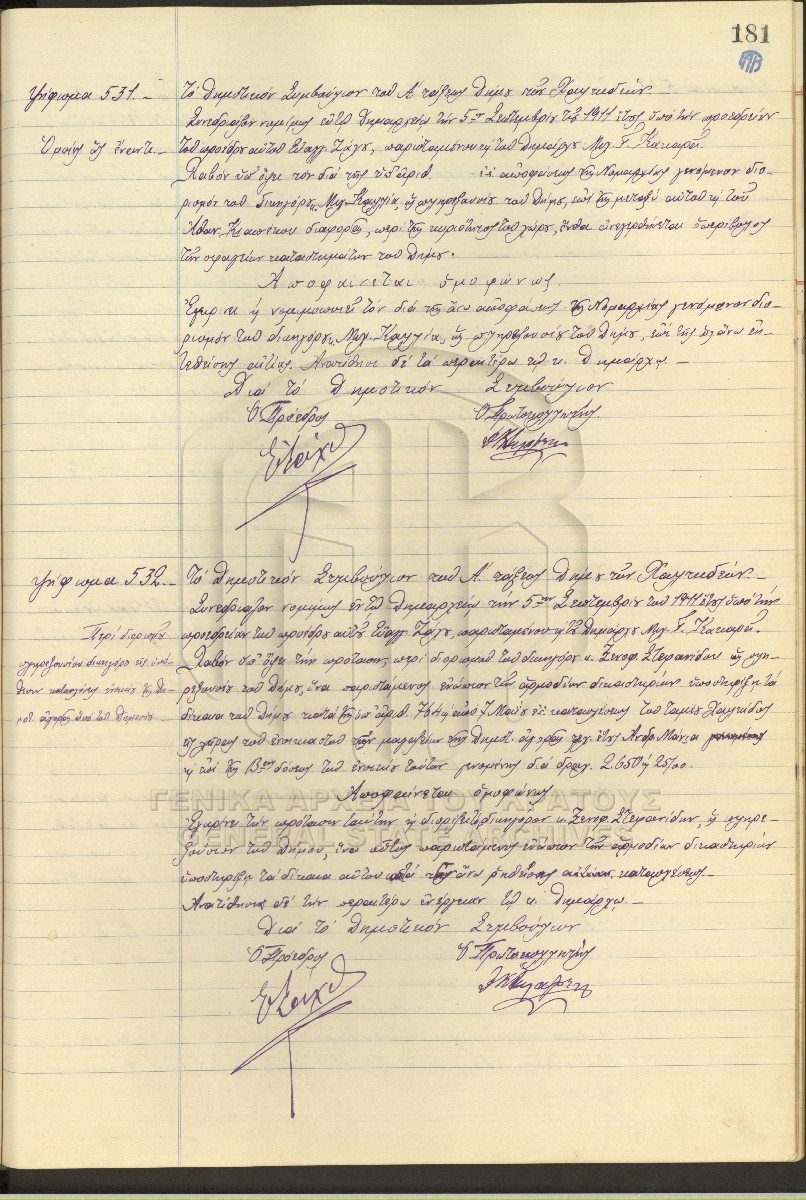 181
Ψήφισμα 531.- Τὸ Δημοτικὸν Συμβούλιον τοῦ Α' τάξεως Δήμου τῶν Χαλκιδέων.
Συνεδριάσαν νομίμως ἐν τῷ Δημαρχείῳ τὴν 5ην Σεπτεμβρίου τοῦ 1911 ἔτους ὑπὸ τὴν προεδρείαν
τοῦ προέδρου αὐτοῦ Εὐαγγ. Ζάχου, παρισταμένου καὶ τοῦ Δημάρχου Μιχ. Γ. Κακαρᾶ.
Λαβὸν ὑπ' ὄψει τὸν διὰ τῆς ὑπ' ἀριθ. ἀποφάσεως τῆς Νομαρχίας γενόμενον διο-
ρισμὸν τοῦ δικηγόρου κ. Μιχ. Καλλία, ὡς πληρεξουσίου τοῦ Δήμου, ἐπὶ τῆς μεταξὺ αὐτοῦ καὶ τοῦ
Ἀθαν. διαφορᾶς, περὶ τῆς κυριότητος τοῦ χώρου, ἔνθα ἀνεγείρονται
τῶν καταστημάτων τοῦ Δήμου.
Ἀποφαίνεται ὁμοφώνως.
Ἐγκρίνει καὶ νομιμοποιεῖ τὸν διὰ τῆς ἄνω ἀποφάσεως τῆς Νομαρχίας γενόμενον διο-
ρισμὸν τοῦ δικηγόρου κ. Μιχ. Καλλία, ὡς πληρεξουσίου τοῦ Δήμου, ἐπὶ τῆς ἄνω ἐκ-
τεθείσης αἰτίας. Ἀνατίθησι δὲ τὰ περαιτέρω τῷ κ. Δημάρχῳ.-
Διὰ τὸ Δημοτικὸν Συμβούλιον
Ὁ Πρόεδρος Ὁ Πρωτοκολλητὴς
Ψήφισμα 532.- Τὸ Δημοτικὸν Συμβούλιον τοῦ Α' τάξεως Δήμου τῶν Χαλκιδέων.-
Συνεδριάσαν νομίμως ἐν τῷ Δημαρχείῳ τὴν 5ην Σεπτεμβρίου τοῦ 1911 ἔτους ὑπὸ τὴν
Περὶ διορισμοῦ προεδρείαν τοῦ προέδρου αὐτοῦ Εὐαγγ. Ζάχου, παρισταμένου καὶ τοῦ Δημάρχου Μιχ. Γ. Κακαρᾶ.
πληρεξουσίου δικηγόρου Λαβὸν ὑπ' ὄψει τὴν πρότασιν, περὶ διορισμοῦ τοῦ δικηγόρου κ. Ξενοφ. Στεφανίδου ὡς πλη-
ρεξουσίου τοῦ Δήμου, ἵνα παριστάμενος ἐνώπιον τῶν ἁρμοδίων δικαστηρίων ὑποστηρίξῃ τὰ
δίκαια τοῦ Δήμου κατὰ τῆς ὑπ' ἀριθ. 764 καὶ ἀπὸ 7 Μαΐου κατασχέσεως τοῦ ταμίου Χαλκίδος
εἰς χεῖρας τοῦ ἐνοικιαστοῦ τῶν μαγαζείων τῆς Δημοτ. ἀγορᾶς
καὶ ἐπὶ τῆς Βας δόσεως τοῦ ἐνοικίου τούτων γενομένης διὰ δραχ. 2.650 καὶ 25/00.
Ἀποφαίνεται ὁμοφώνως
Ἐγκρίνει τὴν πρότασιν ταύτην καὶ διορίζει τὸν δικηγόρον κ. Ξενοφ. Στεφανίδην, ὡς πληρε-
ξούσιον τοῦ Δήμου, ἵνα οὗτος παριστάμενος ἐνώπιον τῶν ἁρμοδίων δικαστηρίων
ὑποστηρίξῃ τὰ δίκαια αὐτοῦ κατὰ τῆς ἄνω ῥηθείσης κατασχέσεως.-
Ἀνατίθησι δὲ τὴν περαιτέρω ἐνέργειαν τῷ κ. Δημάρχῳ.-
Διὰ τὸ Δημοτικὸν Συμβούλιον
Ὁ Πρόεδρος Ὁ Πρωτοκολλητὴς
ΓΕΝΙΚΑ ΑΡΧΕΙΑ ΤΟΥ ΚΡΑΤΟΥΣ
GENERAL STATE ARCHIVES